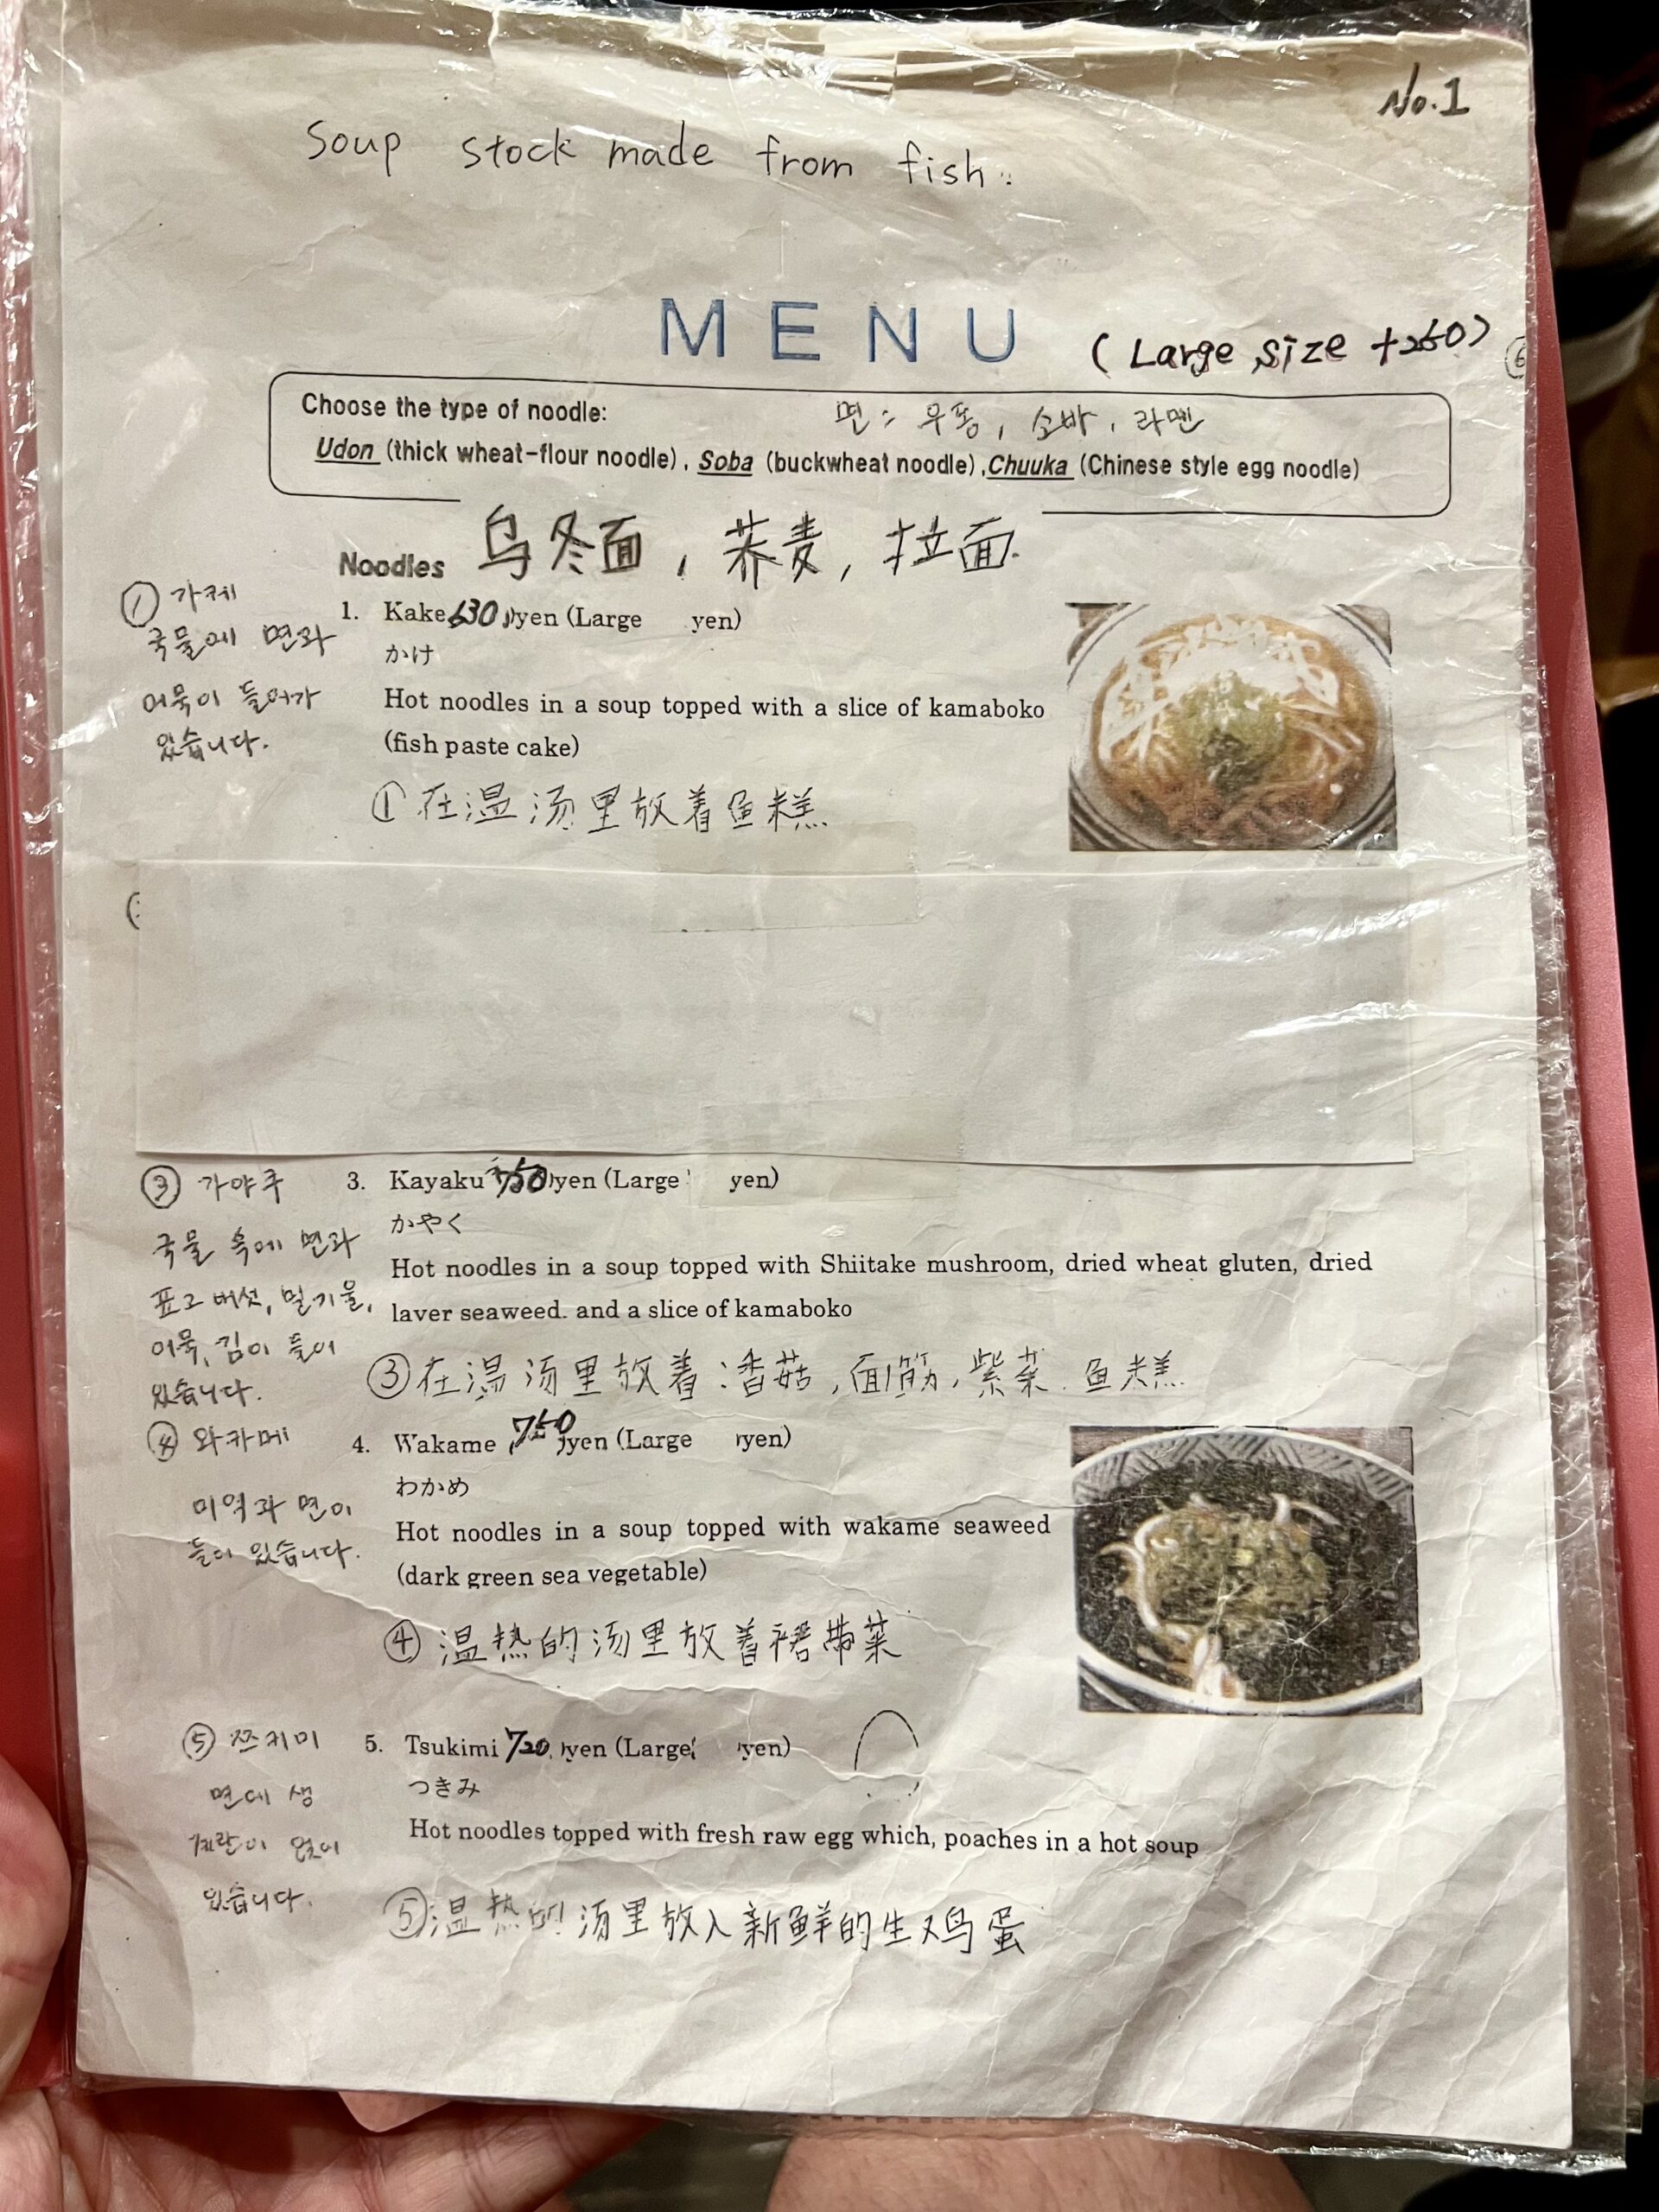 No.1
Soup stock made from fish.
MENU
(Large size +250)
6
Choose the type of noodle:
면: 우동, 소바, 라멘
Udon (thick wheat-flour noodle), Soba (buckwheat noodle), Chuuka (Chinese style egg noodle)
Noodles 乌冬面, 荞麦, 拉面.
① 가케
국물에 면과
어묵이 들어가
있습니다.
1. Kake 630 yen (Large yen)
かけ
Hot noodles in a soup topped with a slice of kamaboko
(fish paste cake)
①在温汤里放着鱼糕
③ 가야쿠
국물 속에 면과
표고버섯, 밀기울,
어묵, 김이 들어
있습니다.
3. Kayaku 750 yen (Large yen)
かやく
Hot noodles in a soup topped with Shiitake mushroom, dried wheat gluten, dried
laver seaweed. and a slice of kamaboko
③在温汤里放着:香菇,面筋,紫菜.鱼糕
④ 와카메
미역과 면이
들어 있습니다.
4. Wakame 750 yen (Large yen)
わかめ
Hot noodles in a soup topped with wakame seaweed
(dark green sea vegetable)
④温热的汤里放着裙带菜
⑤ 쯔키미
면에 생
계란이 얹어
있습니다.
5. Tsukimi 720 yen (Large yen)
つきみ
Hot noodles topped with fresh raw egg which, poaches in a hot soup
⑤温热的汤里放入新鲜的生鸡蛋